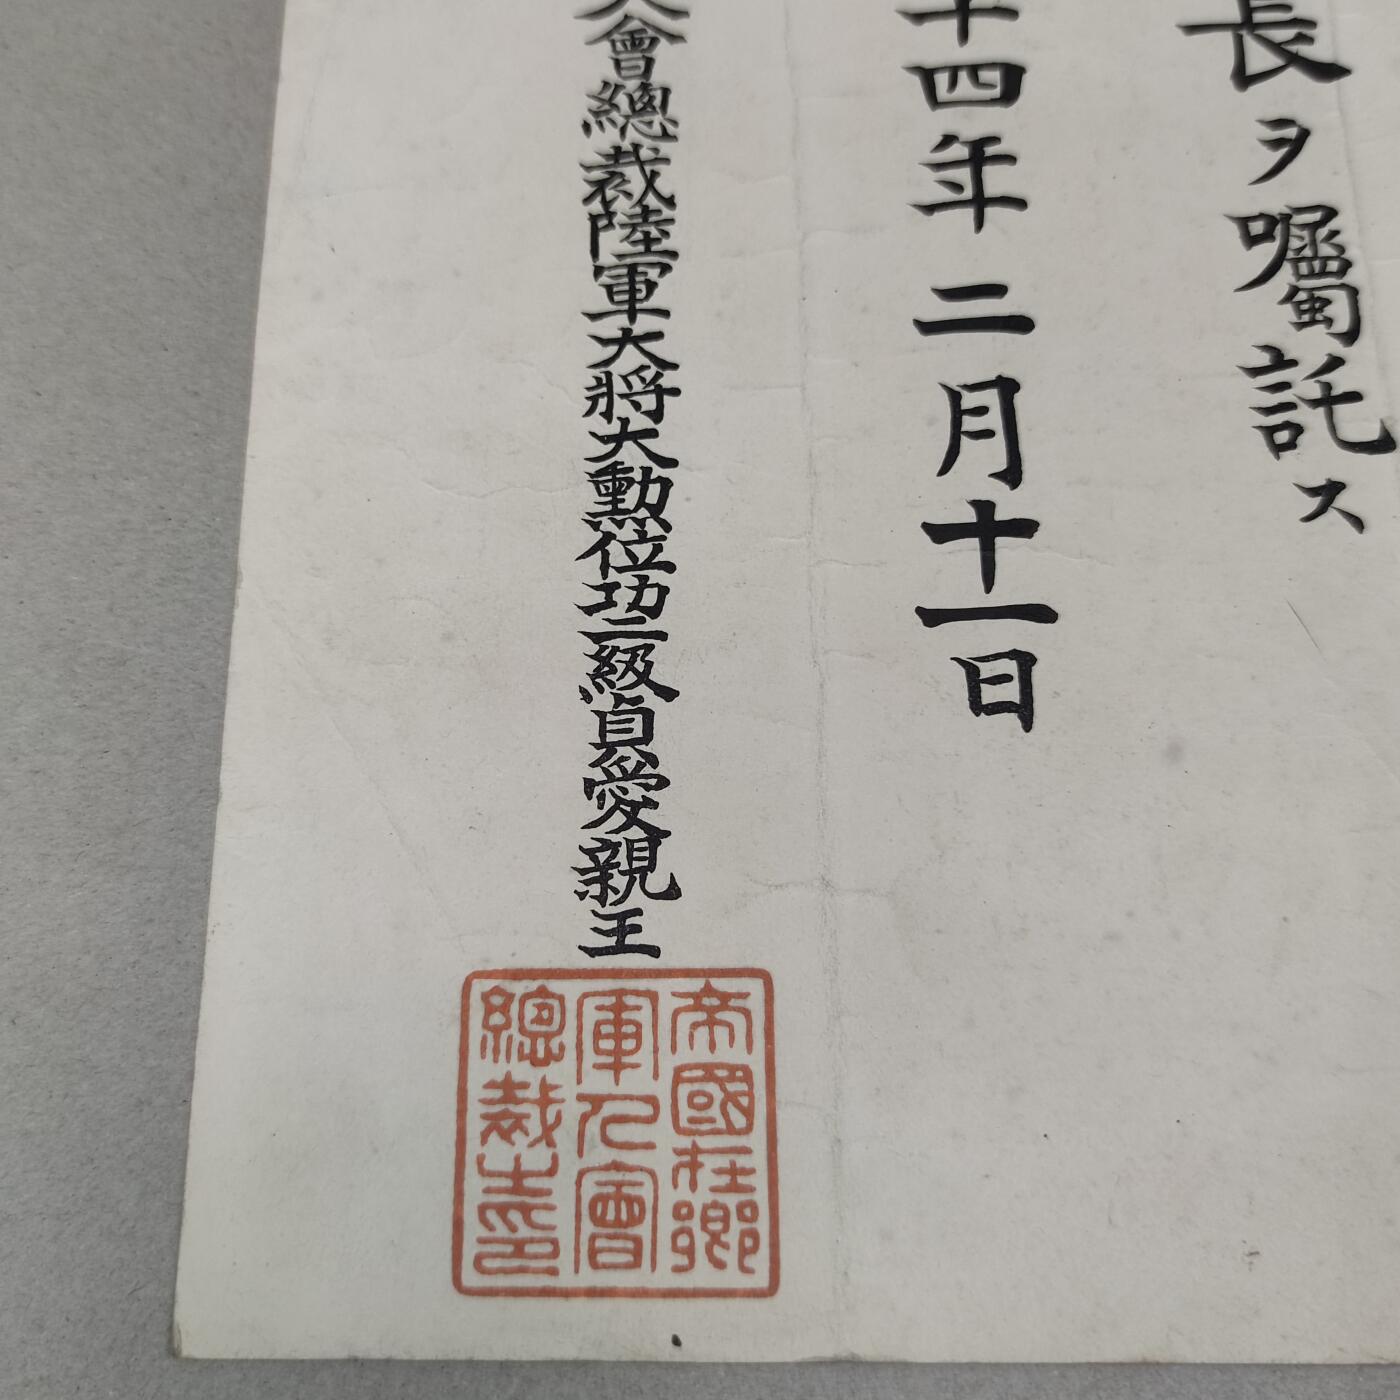 長ヲ囑託ス
十四年二月十一日
人會總裁陸軍大將大勳位功二級貞愛親王
帝國在鄕
軍人會
總裁之印